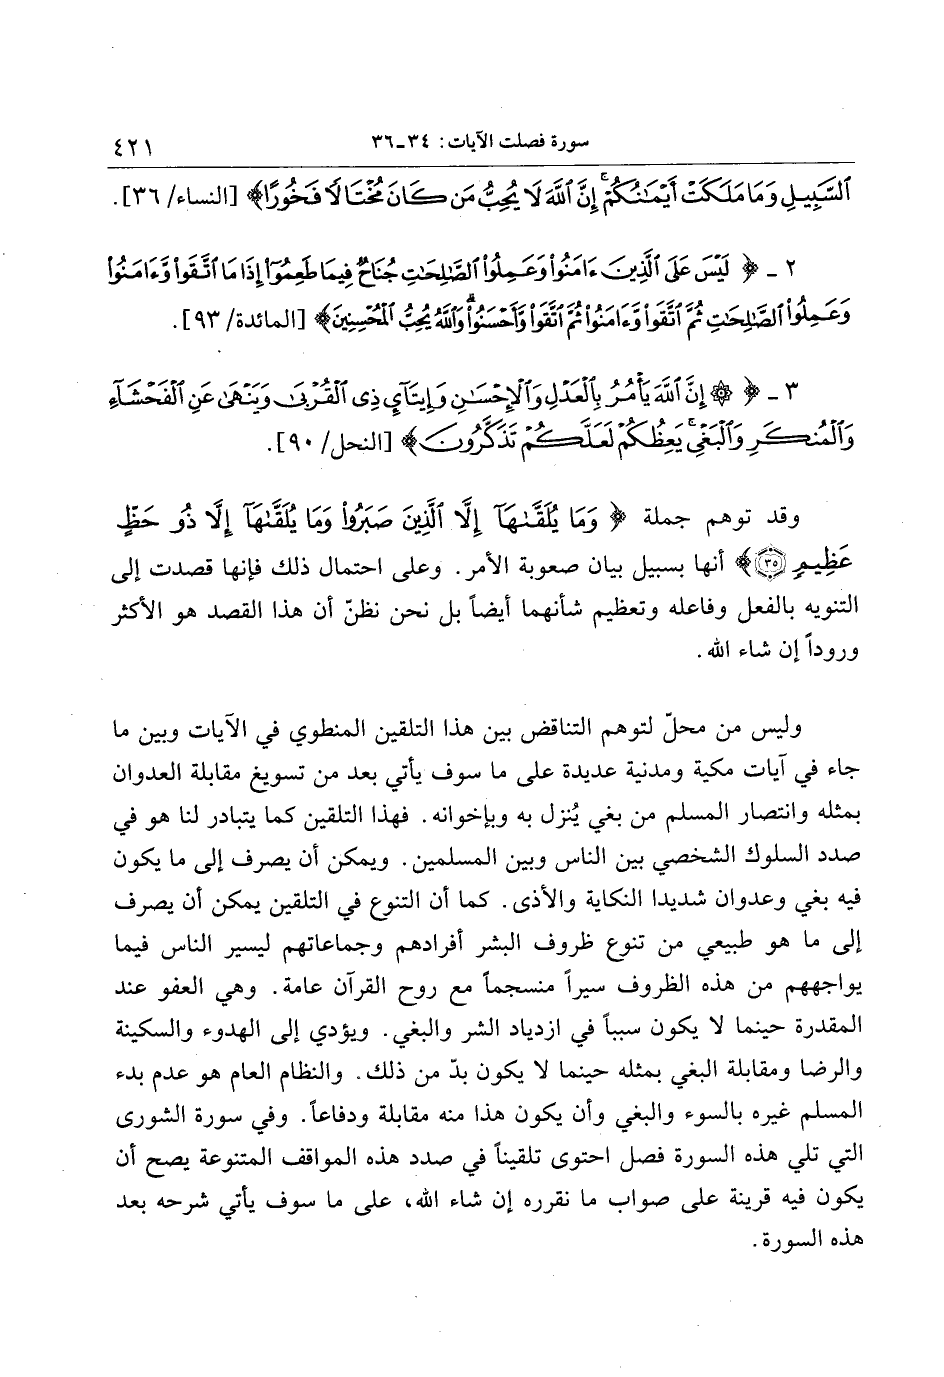 سورة فصلت الآيات: ٣٤-٣٦ ٤٢١
ٱلسَّبِيلِ وَمَا مَلَكَتْ أَيْمَٰنُكُمْ ۚ إِنَّ ٱللَّهَ لَا يُحِبُّ مَن كَانَ مُخْتَالًا فَخُورًا﴾ [النساء/ ٣٦].
٢ - ﴿ لَيْسَ عَلَى ٱلَّذِينَ ءَامَنُوا۟ وَعَمِلُوا۟ ٱلصَّٰلِحَٰتِ جُنَاحٌ فِيمَا طَعِمُوٓا۟ إِذَا مَا ٱتَّقَوا۟ وَّءَامَنُوا۟
وَعَمِلُوا۟ ٱلصَّٰلِحَٰتِ ثُمَّ ٱتَّقَوا۟ وَّءَامَنُوا۟ ثُمَّ ٱتَّقَوا۟ وَّأَحْسَنُوا۟ ۗ وَٱللَّهُ يُحِبُّ ٱلْمُحْسِنِينَ﴾ [المائدة/ ٩٣].
٣ - ﴿ ۞ إِنَّ ٱللَّهَ يَأْمُرُ بِٱلْعَدْلِ وَٱلْإِحْسَٰنِ وَإِيتَآئِ ذِى ٱلْقُرْبَىٰ وَيَنْهَىٰ عَنِ ٱلْفَحْشَآءِ
وَٱلْمُنكَرِ وَٱلْبَغْىِ ۚ يَعِظُكُمْ لَعَلَّكُمْ تَذَكَّرُونَ﴾ [النحل/ ٩٠].
وقد توهم جملة ﴿ وَمَا يُلَقَّىٰهَآ إِلَّا ٱلَّذِينَ صَبَرُوا۟ وَمَا يُلَقَّىٰهَآ إِلَّا ذُو حَظٍّ
عَظِيمٍ ٣٥﴾ أنها بسبيل بيان صعوبة الأمر. وعلى احتمال ذلك فإنها قصدت إلى
التنويه بالفعل وفاعله وتعظيم شأنهما أيضاً بل نحن نظنّ أن هذا القصد هو الأكثر
وروداً إن شاء الله.
وليس من محلّ لتوهم التناقض بين هذا التلقين المنطوي في الآيات وبين ما
جاء في آيات مكية ومدنية عديدة على ما سوف يأتي بعد من تسويغ مقابلة العدوان
بمثله وانتصار المسلم من بغي يُنزل به وبإخوانه. فهذا التلقين كما يتبادر لنا هو في
صدد السلوك الشخصي بين الناس وبين المسلمين. ويمكن أن يصرف إلى ما يكون
فيه بغي وعدوان شديدا النكاية والأذى. كما أن التنوع في التلقين يمكن أن يصرف
إلى ما هو طبيعي من تنوع ظروف البشر أفرادهم وجماعاتهم ليسير الناس فيما
يواجههم من هذه الظروف سيراً منسجماً مع روح القرآن عامة. وهي العفو عند
المقدرة حينما لا يكون سبباً في ازدياد الشر والبغي. ويؤدي إلى الهدوء والسكينة
والرضا ومقابلة البغي بمثله حينما لا يكون بدّ من ذلك. والنظام العام هو عدم بدء
المسلم غيره بالسوء والبغي وأن يكون هذا منه مقابلة ودفاعاً. وفي سورة الشورى
التي تلي هذه السورة فصل احتوى تلقيناً في صدد هذه المواقف المتنوعة يصح أن
يكون فيه قرينة على صواب ما نقرره إن شاء الله، على ما سوف يأتي شرحه بعد
هذه السورة.